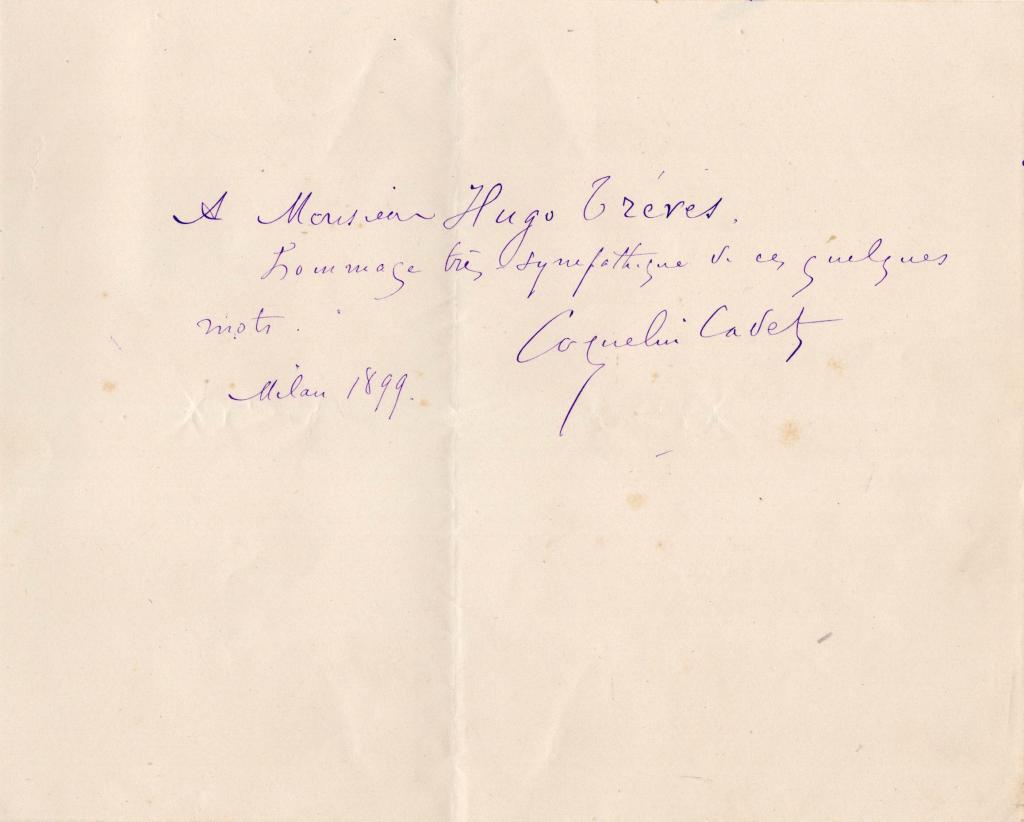 A Monsieur Hugo Tréves.
hommage très sympathique de ces quelques
mots.
Coquelin Cadet
Milan 1899.